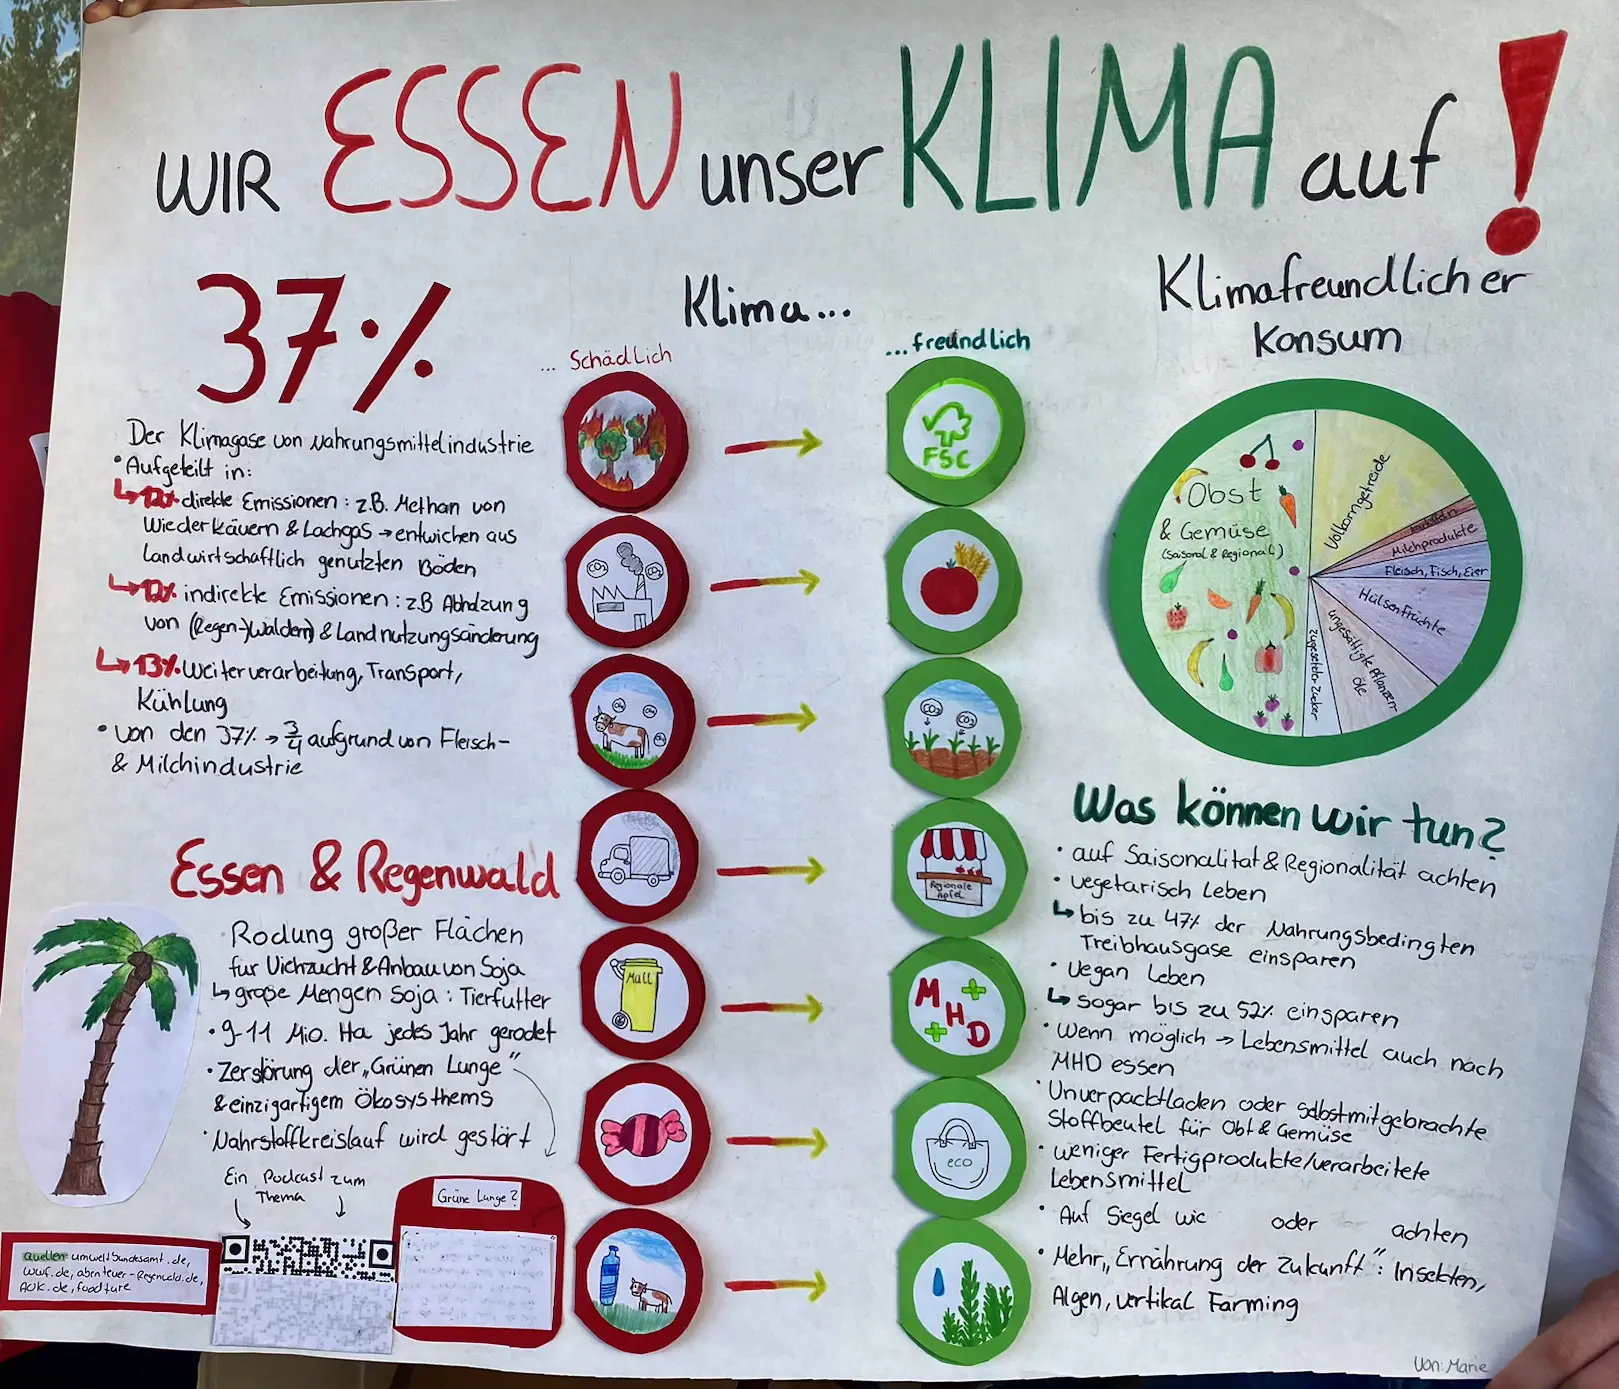 WIR ESSEN unser KLIMA auf!
37%
Der Klimagase von Nahrungsmittelindustrie
• Aufgeteilt in:
↳ 12% direkte Emissionen: z.B. Methan von
Wiederkäuern & Lachgas → entwichen aus
landwirtschaftlich genutzten Böden
↳ 12% indirekte Emissionen: z.B Abholzung
von (Regen-)Wäldern) & Landnutzungsänderung
↳ 13% Weiterverarbeitung, Transport,
Kühlung
• von den 37% → 3/4 aufgrund von Fleisch-
& Milchindustrie
Essen & Regenwald
Rodung großer Flächen
für Viehzucht & Anbau von Soja
↳ große Mengen Soja: Tierfutter
• 9-11 Mio. Ha jedes Jahr gerodet
• Zerstörung der „Grünen Lunge"
& einzigartigem Ökosysthems
• Nährstoffkreislauf wird gestört
Ein Podcast zum
Thema
Grüne Lunge?
Quellen: umweltbundesamt.de,
wwf.de, abenteuer-Regenwald.de,
AOK.de, foodture
Klima...
... Schädlich
... freundlich
FSC
CO2
CO2
CO2
CO2
Regionale
Äpfel
Müll
MHD
eco
Klimafreundlicher
Konsum
Obst
& Gemüse
(saisonal & Regional)
Vollkorngetreide
Kartoffeln
Milchprodukte
Fleisch, Fisch, Eier
Hülsenfrüchte
ungesättigte Pflanzen-
öle
zugesetzter Zucker
Was können wir tun?
• auf Saisonalität & Regionalität achten
• vegetarisch Leben
↳ bis zu 47% der Nahrungsbedingten
Treibhausgase einsparen
• Vegan Leben
↳ sogar bis zu 52% einsparen
• Wenn möglich → Lebensmittel auch nach
MHD essen
• Unverpacktläden oder selbstmitgebrachte
Stoffbeutel für Obt & Gemüse
• weniger Fertigprodukte/verarbeitete
Lebensmittel
• Auf Siegel wie oder achten
• Mehr „Ernährung der Zukunft": Insekten,
Algen, vertikal Farming
Von: Marie